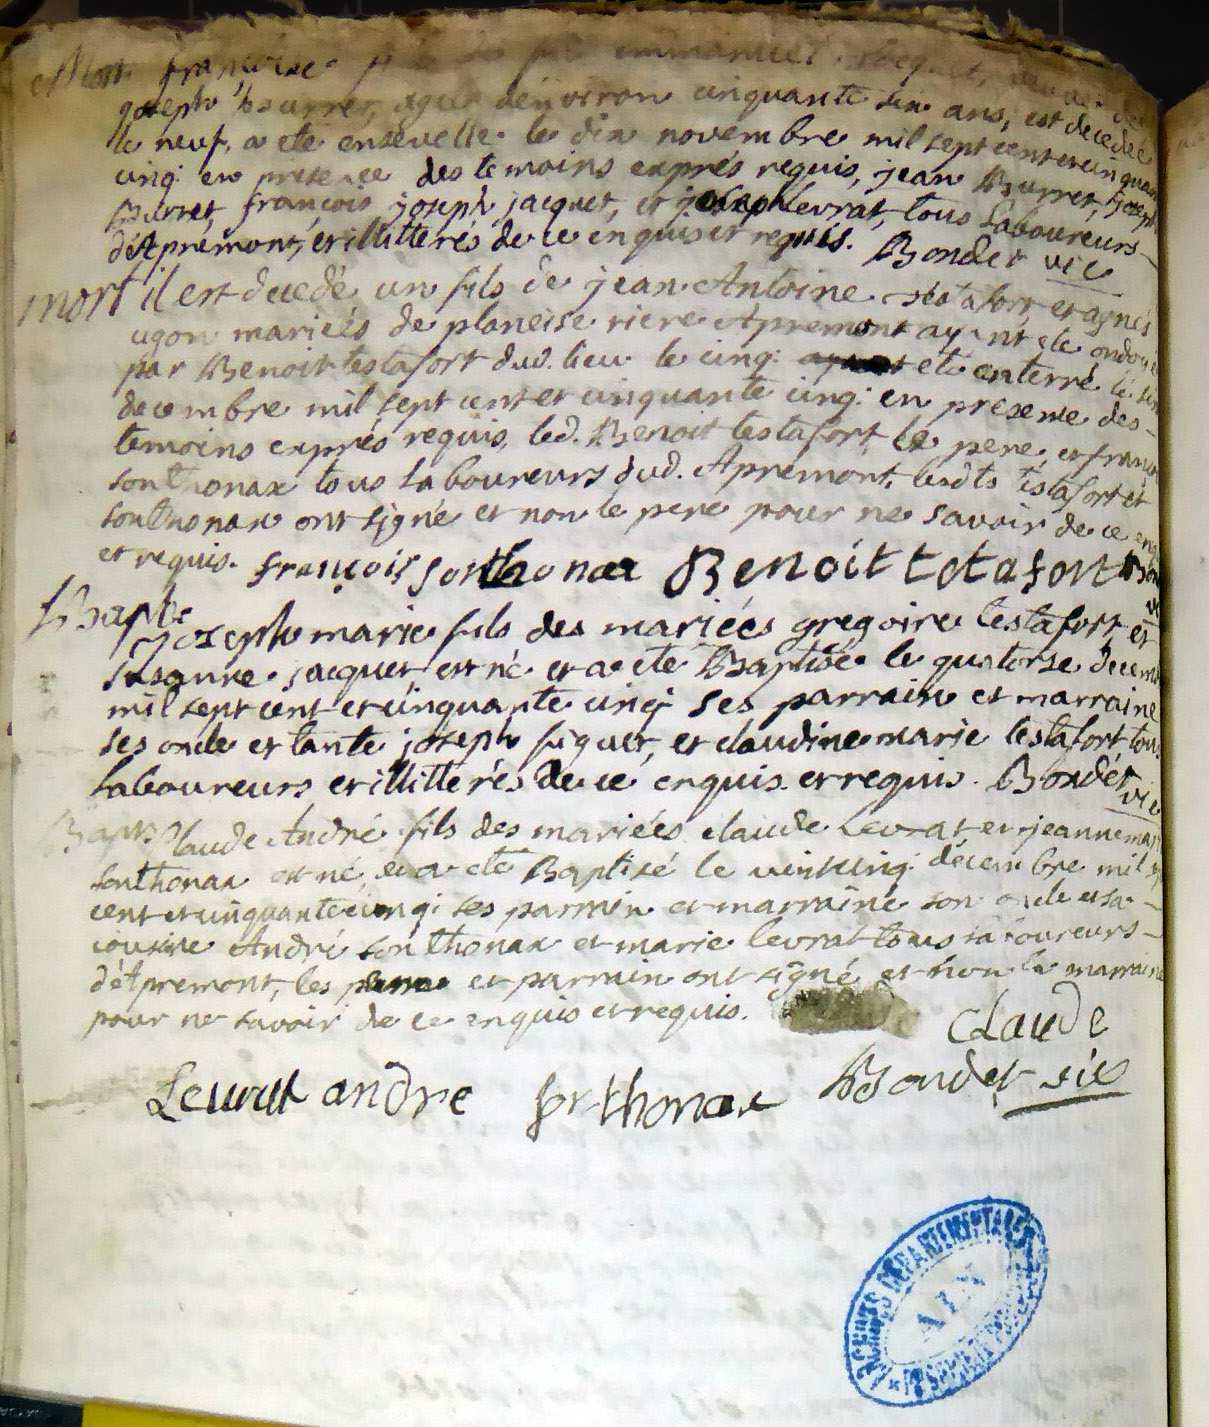 Mort françoise emmanuel jacquet, veuve de
joseph burret, agée denviron cinquante six ans, est decedée
le neuf, a eté ensevelie le dix novembre mil sept cent et cinquan
cinq: en presence des temoins exprés requis, jean Burret, joseph
Burret, françois joseph jacquet, et joseph levrat, tous Laboureurs
d'Apremont, et illitterés de ce enquis et requis. Bondet vic
mort il est decedé un fils de jean Antoine testafort et agnés
ugon mariées de planeise riere Apremont ayant eté ondoyé
par Benoit testafort dud. lieu le cinq: eté enterré le six
decembre mil sept cent et cinquante cinq: en presence des
temoins exprés requis, led. Benoit testafort, le pere, et françois
sonthonax tous Laboureurs dud. Apremont, lesdts testafort et
sonthonax ont signé et non le pere pour ne savoir de ce enq
et requis. françois sonthonax Benoit tetafort Bon
Bapt. vi
joseph marie fils des mariées gregoire testafort et
susanne jacquet est né et a eté Baptisé le quatorse decemb
mil sept cent et cinquante cinq: ses parrain et marraine
ses oncle et tante joseph figuet, et claudine marie testafort tous
Laboureurs, et illitterés de ce enquis et requis. Bondet vic
Bapts Claude André fils des mariées claude Levrat et jeanne mar
sonthonax est né, et a eté Baptisé le vintcinq: décembre mil sep
cent et cinquante cinq: ses parrain et marraine son oncle et sa
cousine André sonthonax et marie levrat tous laboureurs
d'Apremont, les pere et parrain ont signé et non la marraine
pour ne savoir de ce enquis et requis. CLaude
Levrat andre sonthonax Bondet vic
ARCHIVES DÉPARTEMENTALES
AIN